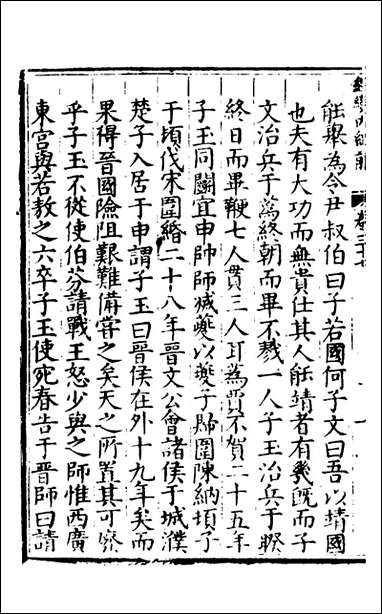 卷三十七
能舉為令尹叔伯曰子若國何子文曰吾以靖國
也夫有大功而無貴仕其人能靖者有幾既而子
文治兵于蔿終朝而畢不戮一人子玉治兵于睽
終日而畢鞭七人貫三人耳為賈不賀二十五年
子玉同鬭宜申帥師滅夔以夔子歸圍陳納頓子
于頓伐宋圍緡二十八年晉文公會諸侯于城濮
楚子入居于申謂子玉曰晉侯在外十九年矣而
果得晉國險阻艱難備嘗之矣天之所置其可廢
乎子玉不從使伯芬請戰王怒少與之師惟西廣
東宮與若敖之六卒子玉使宛春告于晉師曰請